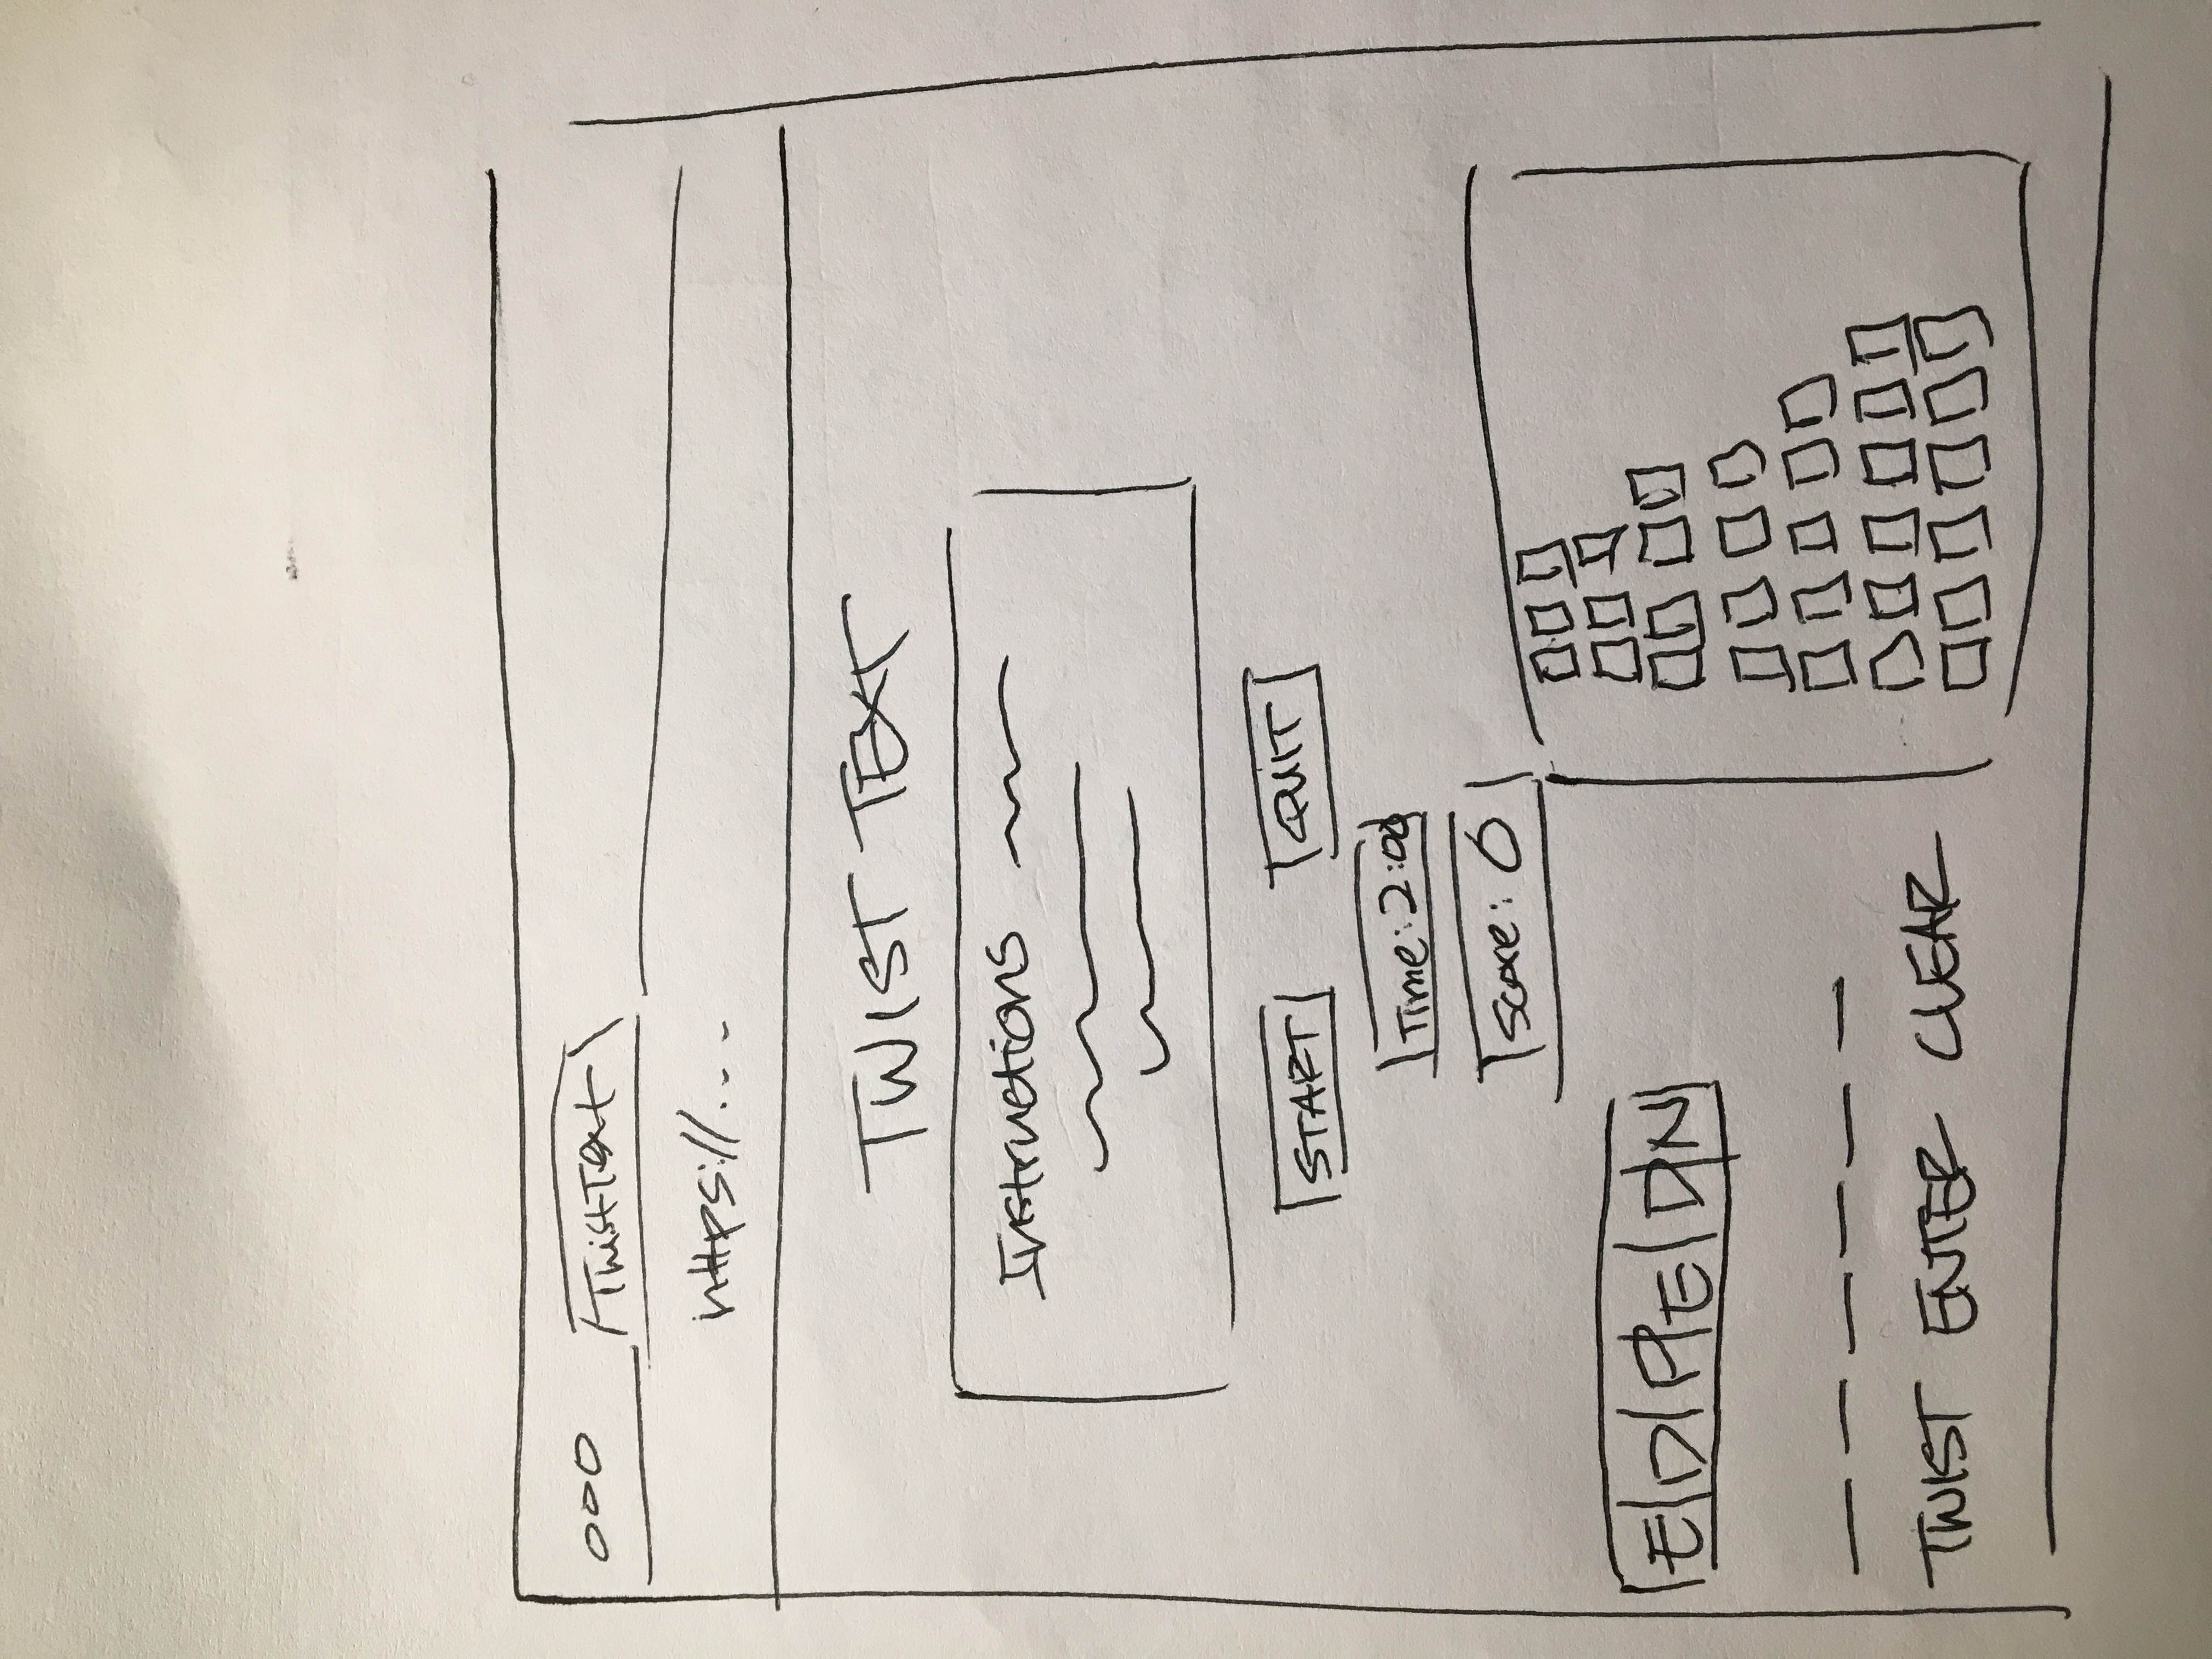 TwistText
https://...
TWIST TEXT
Instructions
START QUIT
Time: 2:00
Score: 0
E D P E D N
TWIST ENTER CLEAR